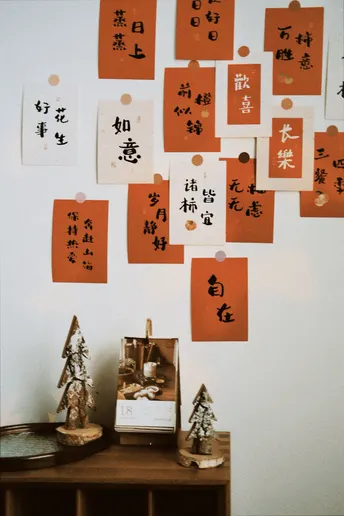 蒸蒸
日上
日日
好日
万柿
胜意
好事
花生
如意
前橙
似锦
歡喜
長樂
三餐
岁月
静好
诸柿
皆宜
无忧
无虑
保持热爱
奔赴山海
自在
18